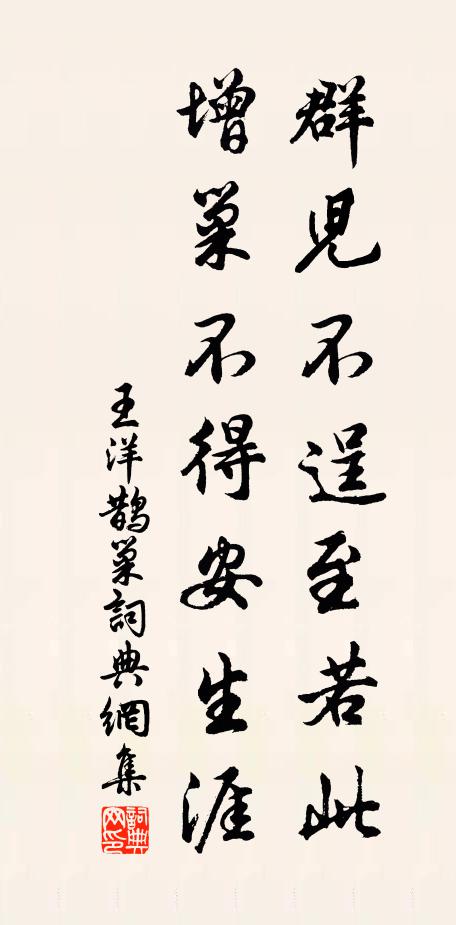 群児不逞至若此
增巢不得安生涯
王洋鹊巢詞典網集
詞典网印